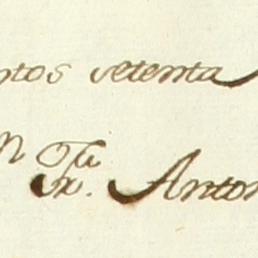 ntos setenta
n Fr. Anton